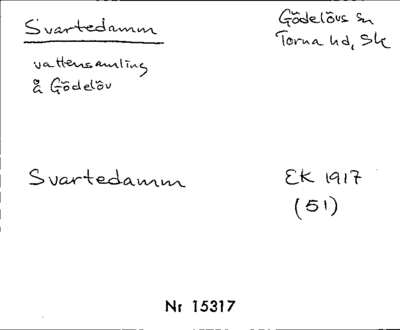 Svartedamm
Gödelövs sn
Torna hd, Sk
vattensamling
å Gödelöv
Svartedamm
EK 1917
(51)
Nr 15317